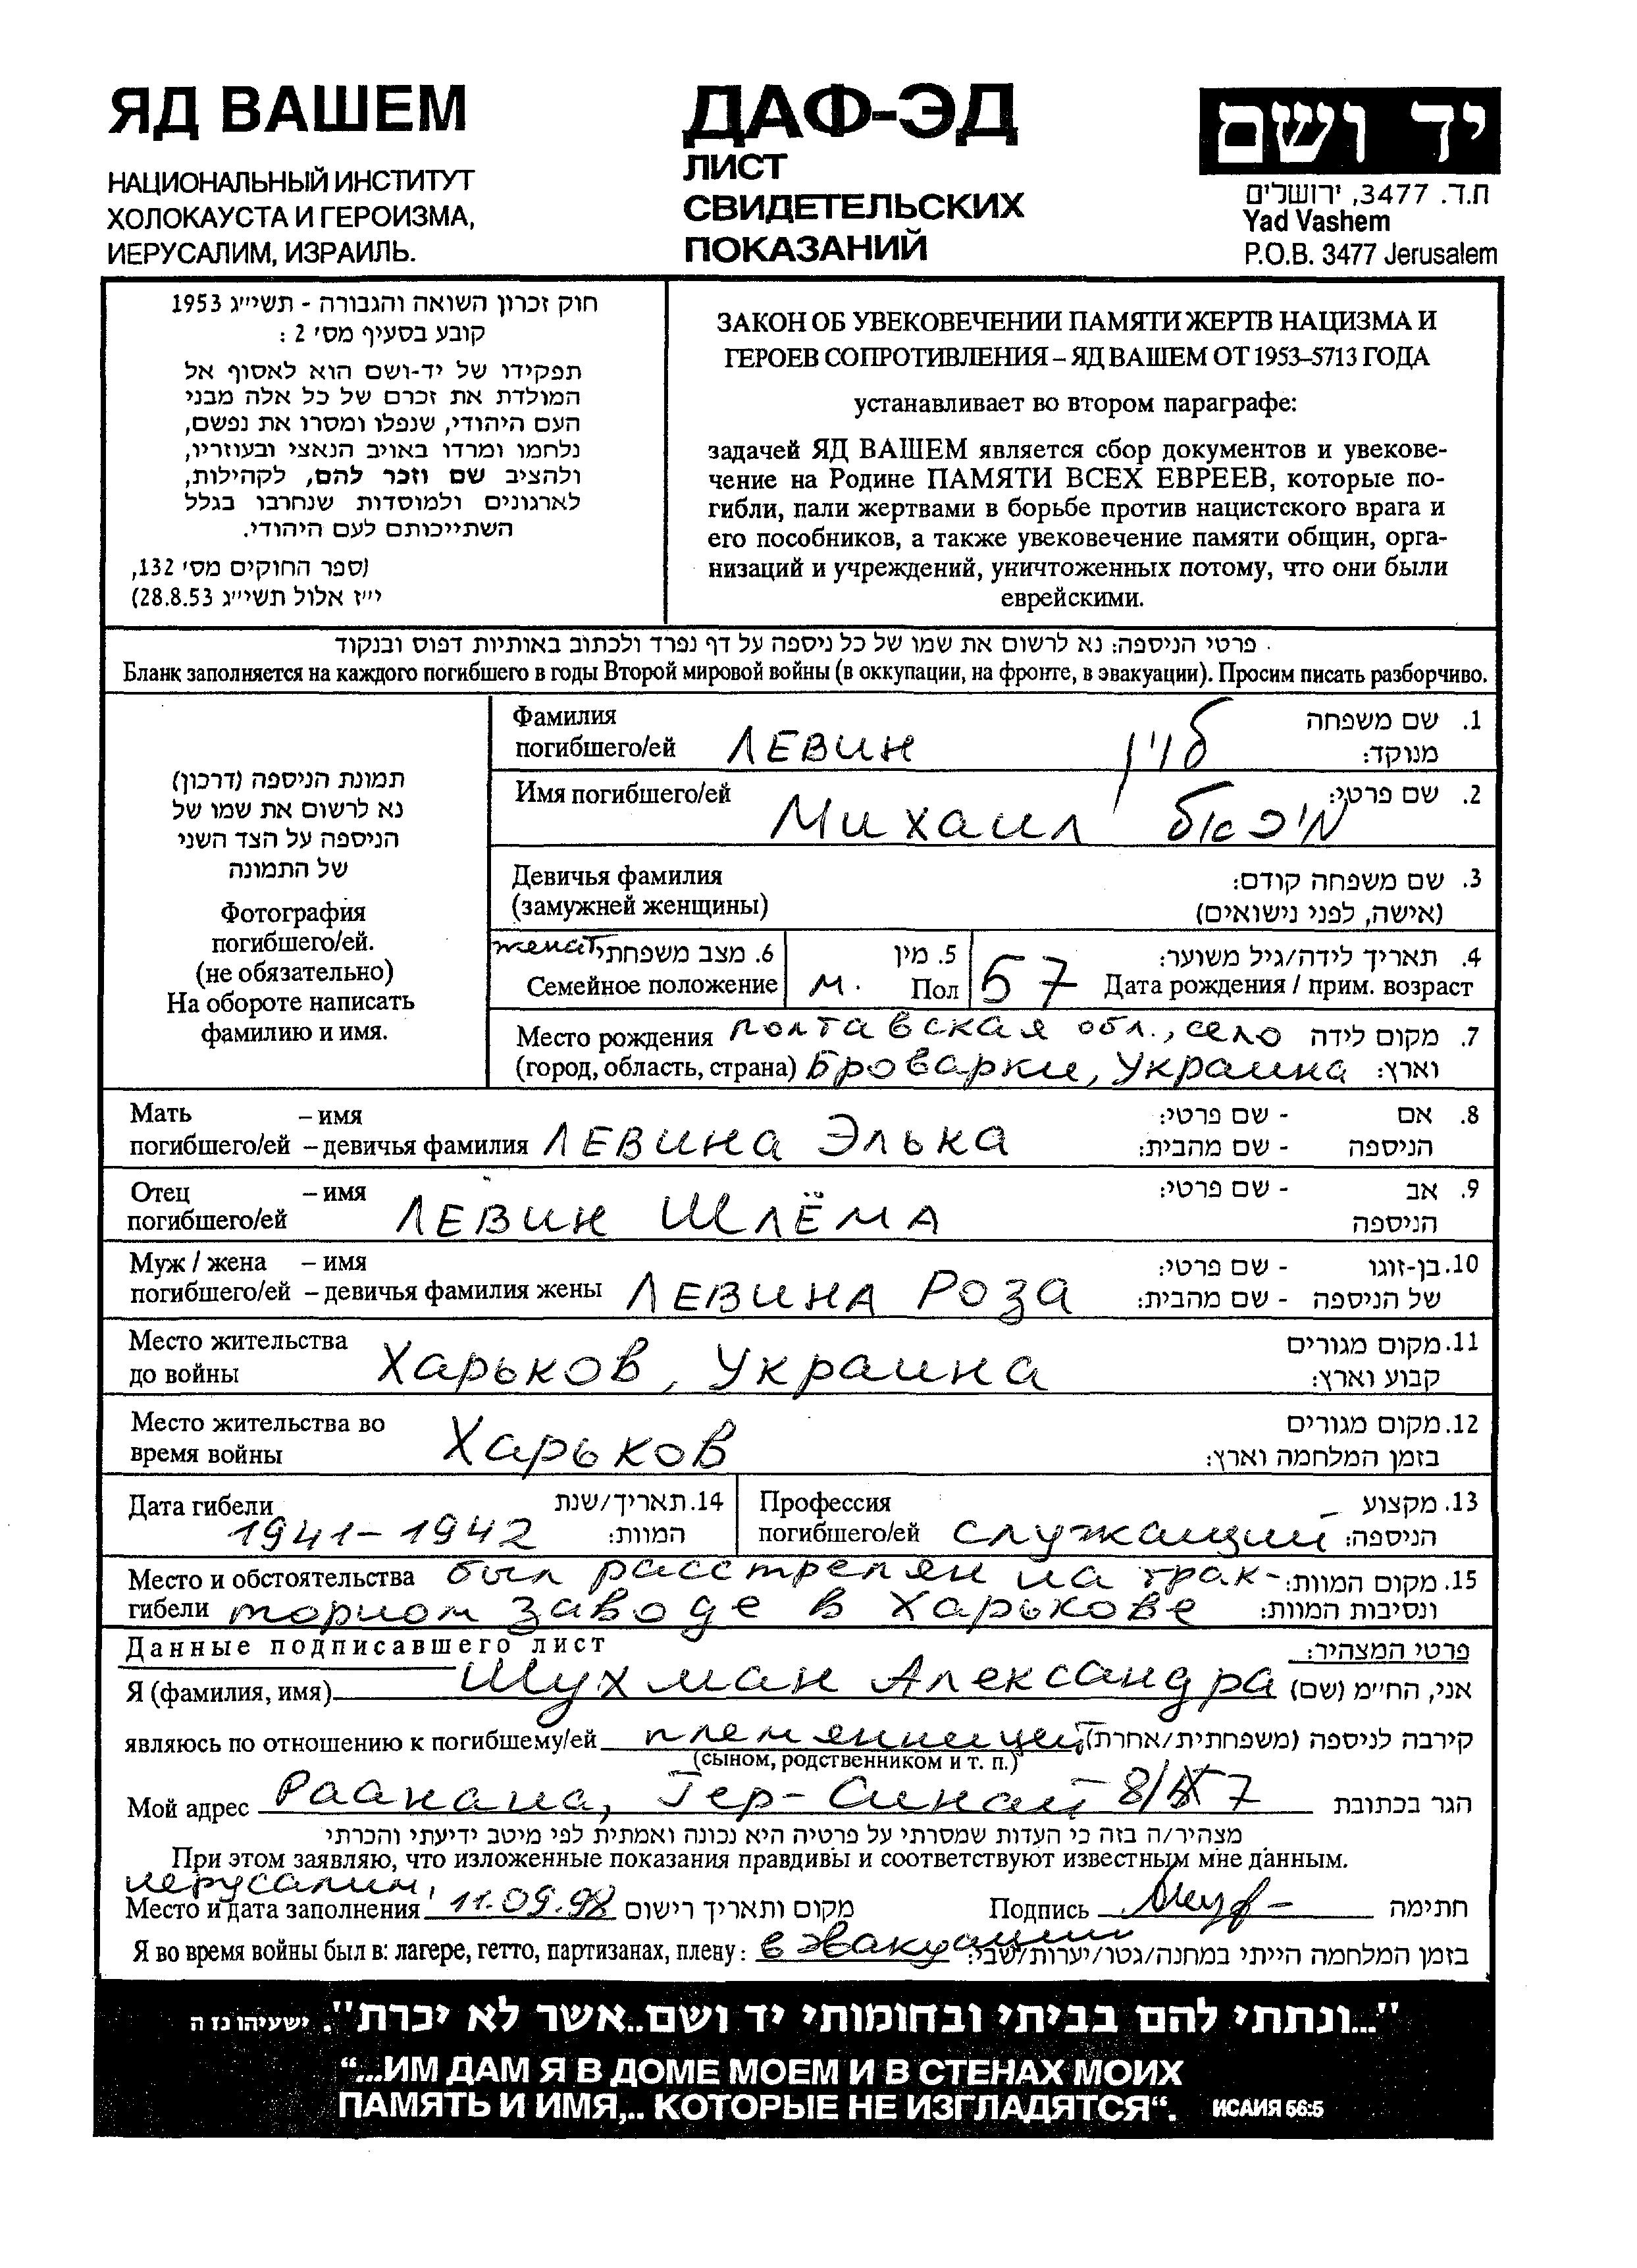 ЯД ВАШЕМ
НАЦИОНАЛЬНЫЙ ИНСТИТУТ
ХОЛОКАУСТА И ГЕРОИЗМА,
ИЕРУСАЛИМ, ИЗРАИЛЬ.
ДАФ-ЭД
ЛИСТ
СВИДЕТЕЛЬСКИХ
ПОКАЗАНИЙ
יד ושם
ת.ד. 3477, ירושלים
Yad Vashem
P.O.B. 3477 Jerusalem
חוק זכרון השואה והגבורה - תשי״ג 1953
קובע בסעיף מס׳ 2 :
תפקידו של יד-ושם הוא לאסוף אל
המולדת את זכרם של כל אלה מבני
העם היהודי, שנפלו ומסרו את נפשם,
נלחמו ומרדו באויב הנאצי ובעוזריו,
ולהציב שם וזכר להם, לקהילות,
לארגונים ולמוסדות שנחרבו בגלל
השתייכותם לעם היהודי.
(ספר החוקים מס׳ 132,
י״ז אלול תשי״ג 28.8.53)
ЗАКОН ОБ УВЕКОВЕЧЕНИИ ПАМЯТИ ЖЕРТВ НАЦИЗМА И
ГЕРОЕВ СОПРОТИВЛЕНИЯ – ЯД ВАШЕМ ОТ 1953–5713 ГОДА
устанавливает во втором параграфе:
задачей ЯД ВАШЕМ является сбор документов и увекове-
чение на Родине ПАМЯТИ ВСЕХ ЕВРЕЕВ, которые по-
гибли, пали жертвами в борьбе против нацистского врага и
его пособников, а также увековечение памяти общин, орга-
низаций и учреждений, уничтоженных потому, что они были
еврейскими.
פרטי הניספה: נא לרשום את שמו של כל ניספה על דף נפרד ולכתוב באותיות דפוס ובנקוד
Бланк заполняется на каждого погибшего в годы Второй мировой войны (в оккупации, на фронте, в эвакуации). Просим писать разборчиво.
תמונת הניספה (דרכון)
נא לרשום את שמו של
הניספה על הצד השני
של התמונה
Фотография
погибшего/ей.
(не обязательно)
На обороте написать
фамилию и имя.
Фамилия 1. שם משפחה
погибшего/ей ЛЕВИН לוין מנוקד:
Имя погибшего/ей Михаил מיכאל 2. שם פרטי:
Девичья фамилия 3. שם משפחה קודם:
(замужней женщины) (אישה, לפני נישואים)
женат 6. מצב משפחתי 5. מין 4. תאריך לידה/גיל משוער:
Семейное положение м. Пол 57 Дата рождения / прим. возраст
Место рождения полтавская обл., село 7. מקום לידה
(город, область, страна) Броварки, Украина וארץ:
Мать – имя 8. אם - שם פרטי:
погибшего/ей – девичья фамилия ЛЕВИНА Элька הניספה - שם מהבית:
Отец – имя 9. אב - שם פרטי:
погибшего/ей ЛЕВИН ШЛЁМА הניספה
Муж / жена – имя 10. בן-זוגו - שם פרטי:
погибшего/ей – девичья фамилия жены ЛЕВИНА Роза של הניספה - שם מהבית:
Место жительства 11. מקום מגורים
до войны Харьков, Украина קבוע וארץ:
Место жительства во 12. מקום מגורים
время войны Харьков בזמן המלחמה וארץ:
Дата гибели 14. תאריך/שנת
1941-1942 המוות:
Профессия 13. מקצוע
погибшего/ей служащий הניספה:
Место и обстоятельства был расстрелян на трак- 15. מקום המוות:
гибели торном заводе в Харькове ונסיבות המוות:
Данные подписавшего лист פרטי המצהיר:
Я (фамилия, имя) Шухман Александра אני, הח״מ (שם)
являюсь по отношению к погибшему/ей племянницей קירבה לניספה (משפחתית/אחרת)
(сыном, родственником и т. п.)
Мой адрес Раанана, Гер-Синай 8/7 הגר בכתובת
מצהיר/ה בזה כי העדות שמסרתי על פרטיה היא נכונה ואמתית לפי מיטב ידיעתי והכרתי
При этом заявляю, что изложенные показания правдивы и соответствуют известным мне данным.
иерусалим,
Место и дата заполнения 11.09.98 מקום ותאריך רישום Подпись חתימה
Я во время войны был в: лагере, гетто, партизанах, плену: в эвакуации בזמן המלחמה הייתי במחנה/גטו/יערות/שבי:
"...ונתתי להם בביתי ובחומותי יד ושם..אשר לא יכרת". ישעיהו נז ה
“...ИМ ДАМ Я В ДОМЕ МОЕМ И В СТЕНАХ МОИХ
ПАМЯТЬ И ИМЯ,.. КОТОРЫЕ НЕ ИЗГЛАДЯТСЯ“. ИСАИЯ 56:5